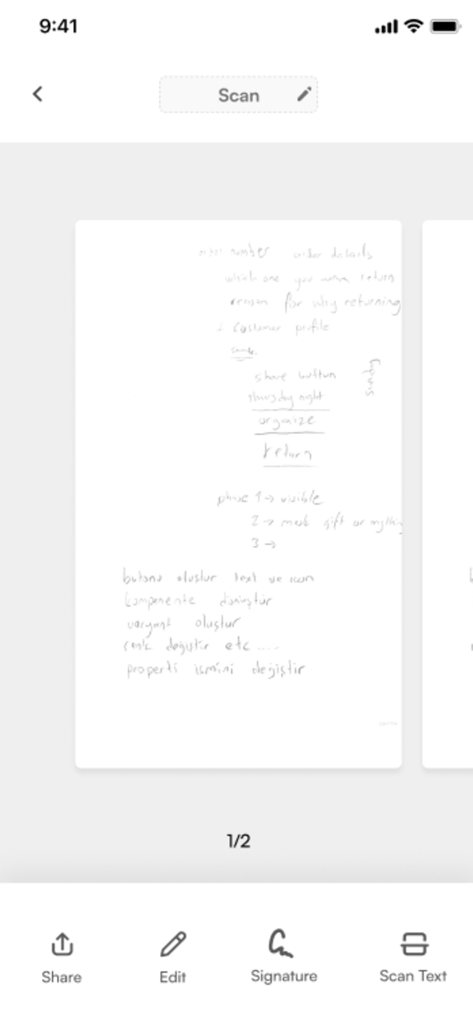 9:41
Scan
number order details
which one you wanna return
reason for why returning
+ costumer profile
share button
thursday night
organize
return
phase 1 → visible
2 → mark gift or
3 →
butonu oluştur text ve icon
komponente dönüştür
varyant oluştur
renk değiştir etc ....
properti ismini değiştir
1/2
Share
Edit
Signature
Scan Text